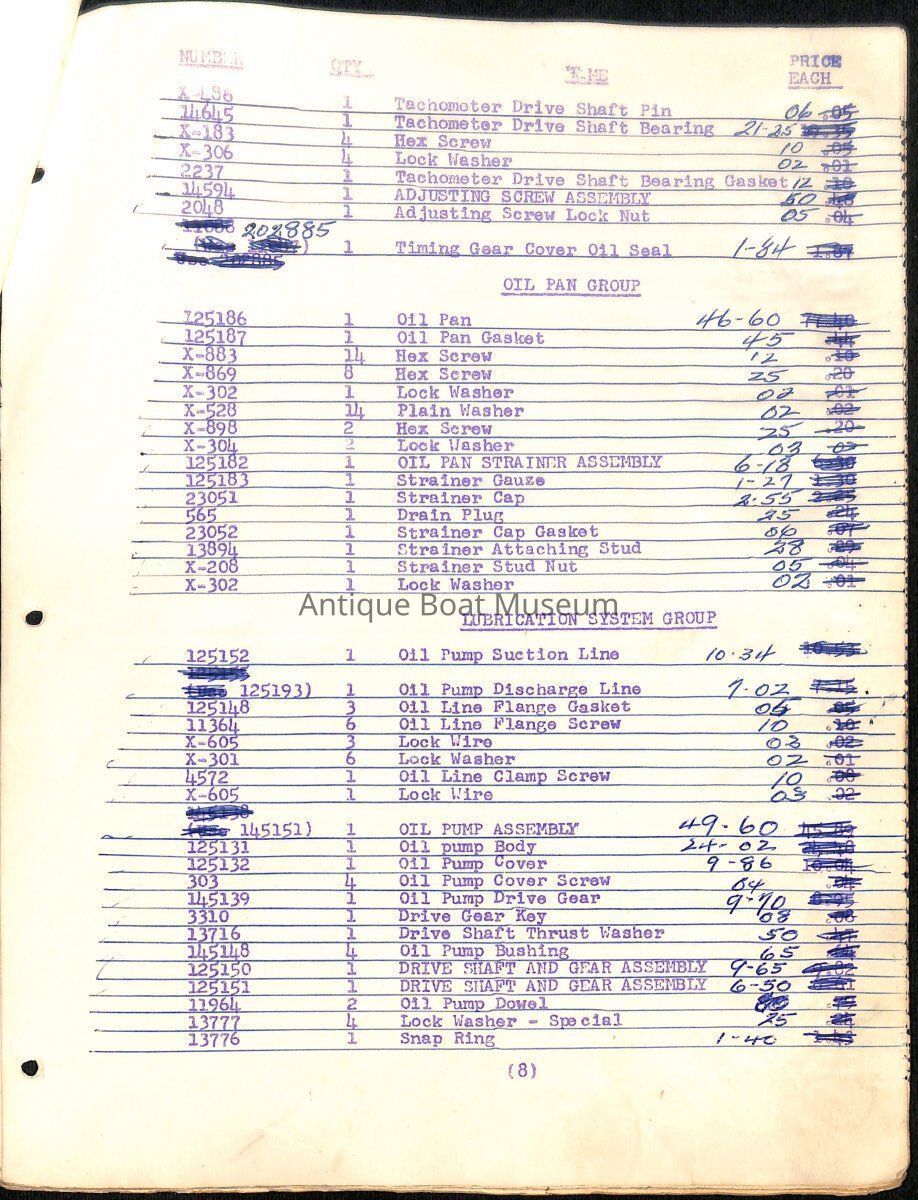 NUMBER QTY NAME PRICE
EACH
X-486 1 Tachometer Drive Shaft Pin 06 .05
14645 1 Tachometer Drive Shaft Bearing 21-25
X-183 4 Hex Screw 10 .05
X-306 4 Lock Washer 02 .01
2237 1 Tachometer Drive Shaft Bearing Gasket 12 .10
14594 1 ADJUSTING SCREW ASSEMBLY 50
2048 1 Adjusting Screw Lock Nut 05 .04
202885
1 Timing Gear Cover Oil Seal 1-84
Use 202885
OIL PAN GROUP
125186 1 Oil Pan 46-60
125187 1 Oil Pan Gasket 45
X-883 14 Hex Screw 12 .10
X-869 8 Hex Screw 25 .20
X-302 1 Lock Washer 02 .01
X-528 14 Plain Washer 02 .02
X-898 2 Hex Screw 25 .20
X-304 2 Lock Washer 03
125182 1 OIL PAN STRAINER ASSEMBLY 6-18
125183 1 Strainer Gauze 1-27 1.30
23051 1 Strainer Cap 2-55
565 1 Drain Plug 25
23052 1 Strainer Cap Gasket 06
13894 1 Strainer Attaching Stud 28
X-208 1 Strainer Stud Nut 05 .04
X-302 1 Lock Washer 02 .01
Antique Boat Museum
LUBRICATION SYSTEM GROUP
125152 1 Oil Pump Suction Line 10-34 10.53
(Use 125193) 1 Oil Pump Discharge Line 7-02
125148 3 Oil Line Flange Gasket .05
11364 6 Oil Line Flange Screw 10 .10
X-605 3 Lock Wire 03 .02
X-301 6 Lock Washer 02 .01
4572 1 Oil Line Clamp Screw 10 .08
X-605 1 Lock Wire 03 .02
(Use 145151) 1 OIL PUMP ASSEMBLY 49-60
125131 1 Oil pump Body 24-02
125132 1 Oil Pump Cover 9-86
303 4 Oil Pump Cover Screw 04
145139 1 Oil Pump Drive Gear 9-70
3310 1 Drive Gear Key 08 .08
13716 1 Drive Shaft Thrust Washer 50
145148 4 Oil Pump Bushing 65
125150 1 DRIVE SHAFT AND GEAR ASSEMBLY 9-65
125151 1 DRIVE SHAFT AND GEAR ASSEMBLY 6-50
11964 2 Oil Pump Dowel
13777 4 Lock Washer - Special 25
13776 1 Snap Ring 1-40
(8)